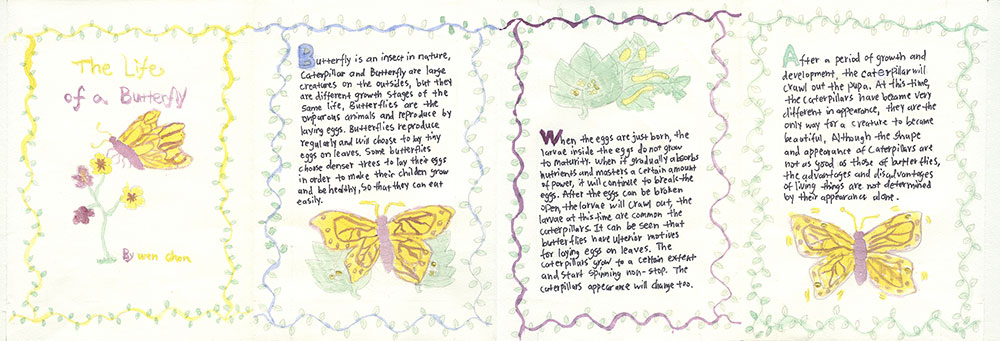 The Life
of a Butterfly
By wen chen
Butterfly is an insect in nature,
Caterpillar and Butterfly are large
creatures on the outsides, but they
are different growth stages of the
same life, Butterflies are the
oviparous animals and reproduce by
laying eggs. Butterflies reproduce
regularly and wiis choose to lay tiny
eggs on leaves. Some butterflies
choose denser trees to lay their eggs
in order to make their childen grow
and be healthy, So that they can eat
easily.
When the eggs are just born, the
larvae inside the eggs do not grow
to maturity. When it gradually absorbs
nutrients and masters a certain amount
of power, it will continue to break the
eggs. After the eggs can be broken
open, the larvae will crawl out, the
larvae at this time are common the
caterpillars. It can be seen that
butterflies have ulterior motives
for laying eggs on leaves. The
caterpillars grow to a certain extent
and start spinning non-stop. The
caterpillars appearance will change too.
After a period of growth and
development, the caterpillar will
crawl out the pupa. At this time,
the caterpillars have became very
different in appearance, they are the
only way for a creature to become
beautiful, Although the shape
and appearance of caterpillars are
not as good as those of butterflies,
the advantages and disadvantages
of living things are not determined
by their appearance alone.